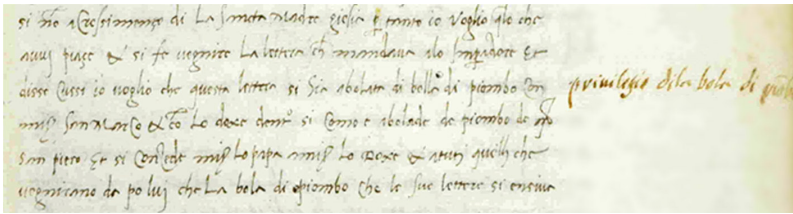 si no acresimento di La Santa Madre giesia per tanto io voglio quelo che
avui piase & si fe vegnire La lettera che mandava alo Imperadore Et
disse cussi io voglio che questa lettera si sia abolata di bolla di piombo con
miss San Marco & con Lo doxe dentro si como e abolade de piombo de
San piero Et si concede miss Lo papa miss Lo Doxe & a tuti quelli che
vegnirano da po lui che La bola di piombo che le sue lettere si
privilegio dila bola di